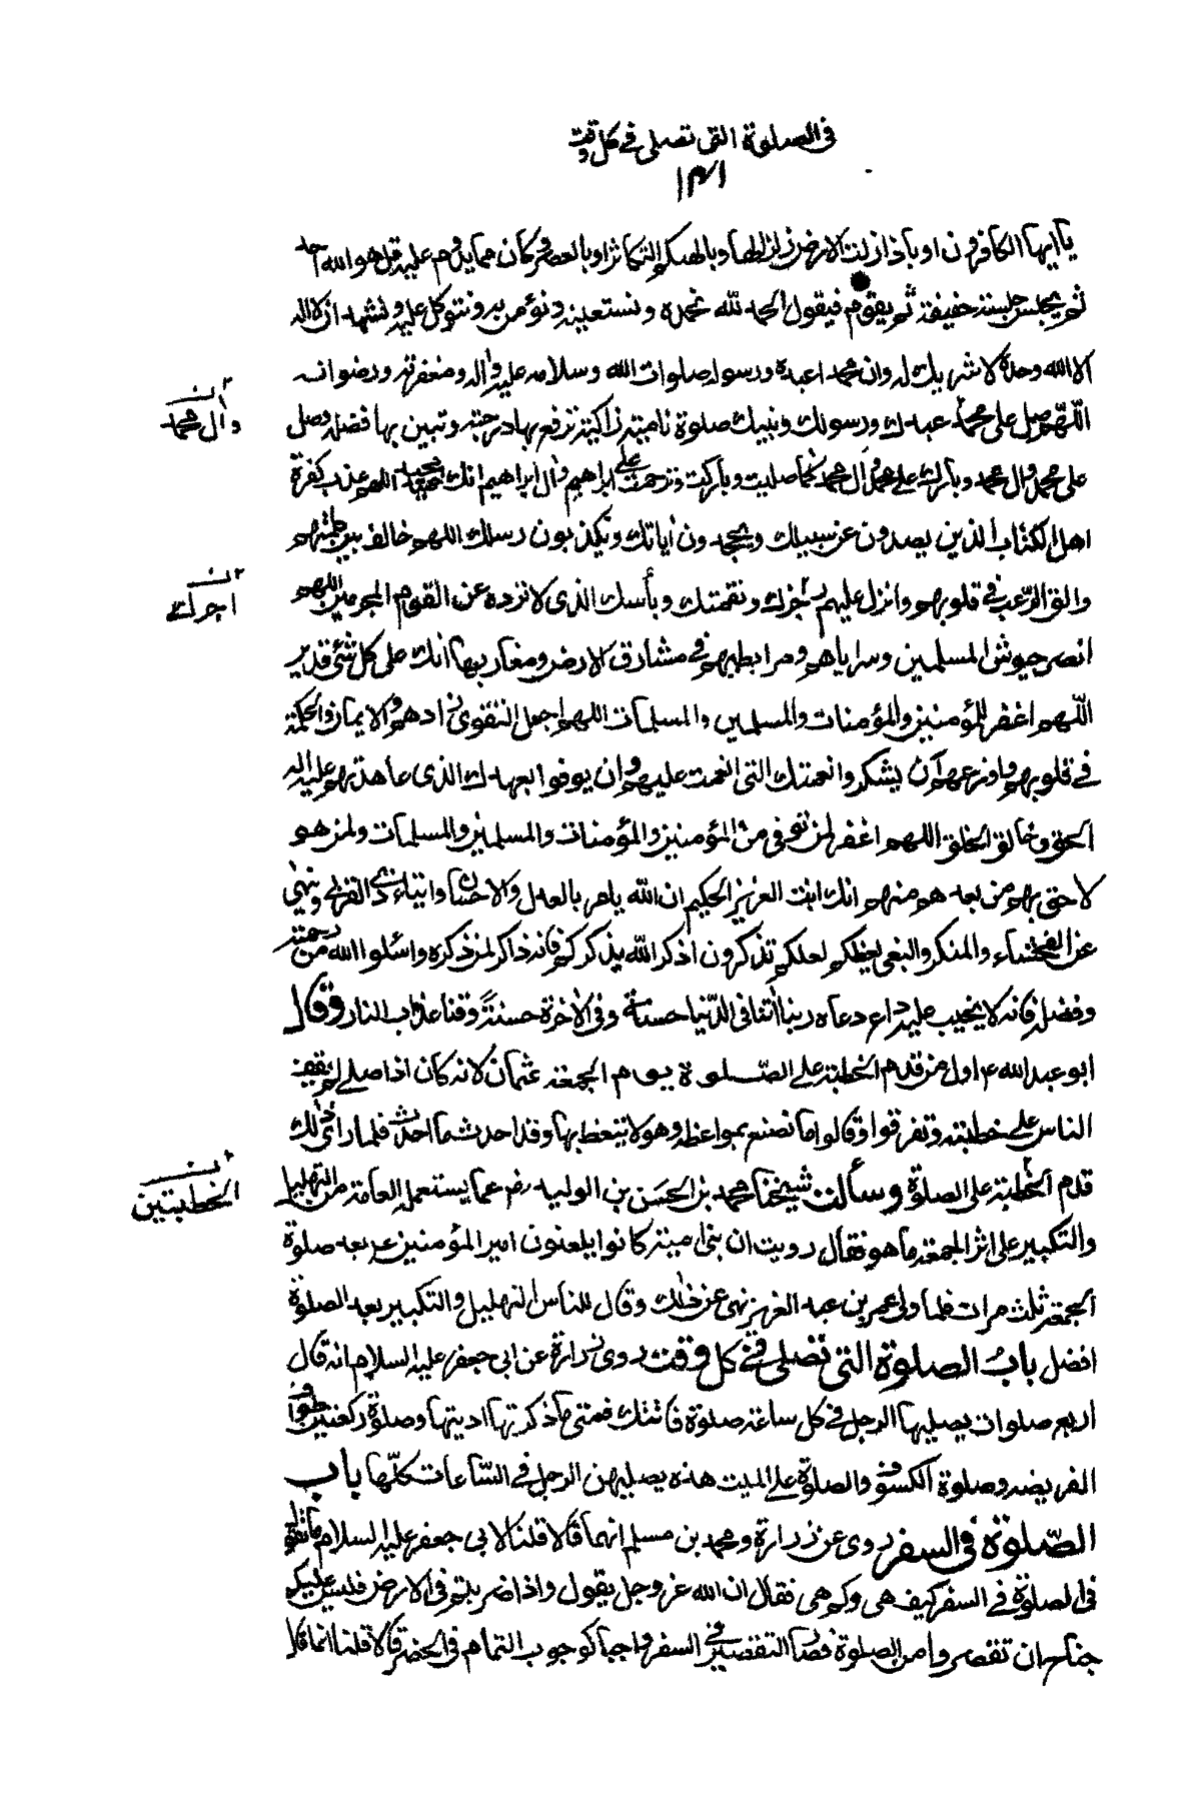 فى الصلوة التى تصلى فى كل وقت
١٣١
يا ايها الكافرون او باذا زلزلت الارض زلزالها وبالهيكم التكاثر او بالعصر وكان مما يدوم عليه قل هو الله احد
ثم يجلس جلسة خفيفة ثم يقوم فيقول الحمد لله نحمده ونستعينه ونؤمن به ونتوكل عليه ونشهد ان لا اله
الا الله وحده لا شريك له وان محمدا عبده ورسوله صلوات الله وسلامه عليه واله ومغفرته ورضوانه
اللهم صل على محمد عبدك ورسولك ونبيك صلوة نامية زاكية ترفع بها درجته وتبين بها فضله وصل
وآل محمد
على محمد وآل محمد وبارك على محمد وآل محمد كما صليت وباركت وترحمت على ابراهيم وآل ابراهيم انك حميد مجيد اللهم عذب كفرة
اهل الكتاب الذين يصدون عن سبيلك ويجحدون آياتك ويكذبون رسلك اللهم خالف بين كلمتهم
والق الرعب فى قلوبهم وانزل عليهم رجزك ونقمتك وبأسك الذى لا ترده عن القوم المجرمين اللهم
انصر جيوش المسلمين وسراياهم ومرابطيهم فى مشارق الارض ومغاربها انك على كل شئ قدير
اللهم اغفر للمؤمنين والمؤمنات والمسلمين والمسلمات اللهم اجعل التقوى زادهم والايمان والحكمة
فى قلوبهم واوزعهم ان يشكروا نعمتك التى انعمت عليهم وان يوفوا بعهدك الذى عاهدتهم عليه اله
الحق وخالق الخلق اللهم اغفر لمن توفى من المؤمنين والمؤمنات والمسلمين والمسلمات ولمن هو
لاحق بهم من بعدهم منهم انك انت العزيز الحكيم ان الله يامر بالعدل والاحسان وايتاء ذى القربى وينهى
عن الفحشاء والمنكر والبغى يعظكم لعلكم تذكرون اذكر الله يذكركم فانه ذاكر لمن ذكره واسئلوا الله من رحمته
وفضله فانه لا يخيب عليه داع دعاه ربنا آتنا فى الدنيا حسنة وفى الآخرة حسنة وقنا عذاب النار وقال
ابو عبد الله ع اول من قدم الخطبة على الصلوة يوم الجمعة عثمان لانه كان اذا صلى لم يقف
الناس على خطبته وتفرقوا وقالوا ما نصنع بمواعظه وهو لا يتعظ بها وقد احدث ما احدث فلما راى ذلك
قدم الخطبة على الصلوة وسألت شيخنا محمد بن الحسن بن الوليد رض عما يستعمله العامة من التهليل
الخطبتين
والتكبير على اثر الجمعة ما هو فقال رويت ان بنى امية كانوا يلعنون امير المؤمنين ع بعد صلوة
الجمعة ثلث مرات فلما ولى عمر بن عبد العزيز نهى عن ذلك وقال للناس التهليل والتكبير بعد الصلوة
افضل باب الصلوة التى تصلى فى كل وقت روى زرارة عن ابى جعفر عليه السلام انه قال
اربع صلوات يصليها الرجل فى كل ساعة صلوة فاتتك فمتى ما ذكرتها اديتها وصلوة ركعتى طواف
الفريضه وصلوة الكسوف والصلوة على الميت هذه يصليهن الرجل فى الساعات كلها باب
الصلوة فى السفر روى عن زرارة ومحمد بن مسلم انهما قالا قلنا لابى جعفر عليه السلام ما تقول
فى الصلوة فى السفر كيف هى وكم هى فقال ان الله عز وجل يقول واذا ضربتم فى الارض فليس عليكم
جناح ان تقصروا من الصلوة فصار التقصير فى السفر واجبا كوجوب التمام فى الحضر قالا قلنا انما قال